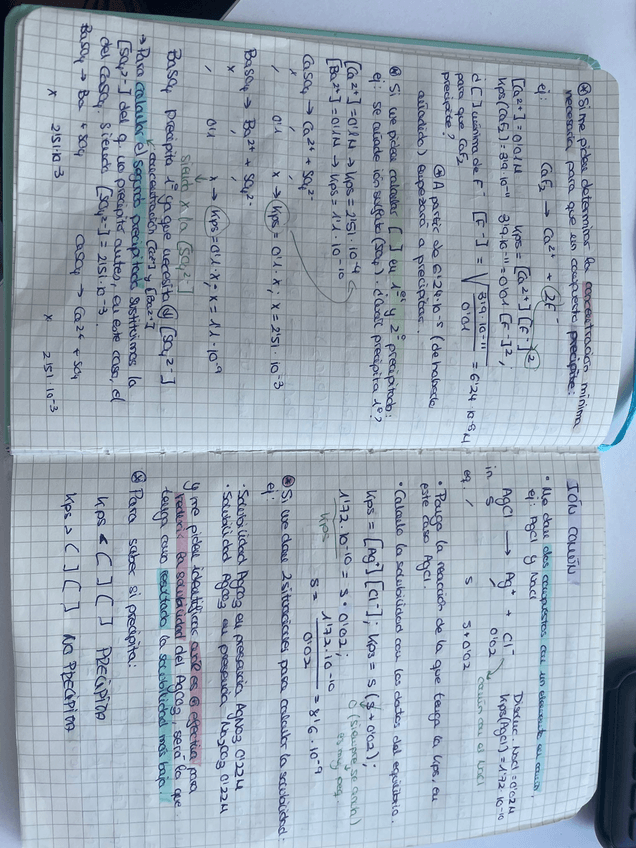 ⊛ Si me piden determinar la concentración mínima
necesaria para que un compuesto precipite:
ej: CaF2 → Ca2+ + 2F-
[Ca2+] = 0'01M Kps = [Ca2+][F-]2
Kps(CaF2) = 3'9·10-11 3'9·10-11 = 0'01 [F-]2;
d [ ] mínima de F- [F-] = √3'9·10-11/0'01 = 6'24·10-5 M
para que CaF2
precipite?
⊛ A partir de 6'24·10-5 (de haberlo
añadido) empezará a precipitar.
⊛ Si me piden calcular [ ] en 1er y 2º precipitado:
ej: Se añade ión sulfato (SO4). ¿Cuál precipita 1º?
[Ca2+] = 0'1M → Kps = 2'51·10-4
[Ba2+] = 0'1M → Kps = 1'1·10-10
CaSO4 → Ca2+ + SO42-
x
0'1 x → Kps = 0'1·x; x = 2'51·10-3
BaSO4 → Ba2+ + SO42-
x
0'1 x → Kps = 0'1·x; x = 1'1·10-9
siendo x la [SO42-]
BaSO4 precipita 1º ya que necesita [SO42-]
concentración [Ca2+] y [Ba2+]
→ Para calcular el segundo precipitado sustituimos la
[SO42-] del q no precipita antes, en este caso, el
del CaSO4. Siendo [SO42-] = 2'51·10-3.
BaSO4 → Ba + SO4 CaSO4 → Ca2+ + SO4
x 2'51·10-3 x 2'51·10-3
IÓN COMÚN
• Me dan dos compuestos con un elemento en común.
ej: AgCl y NaCl
Disoluc. NaCl = 0'02M
AgCl → Ag+ + Cl- Kps(AgCl) = 1'72·10-10
in s 0'02 común con el NaCl
eq s s+0'02
• Pongo la reacción de la que tengo la Kps, en
este caso AgCl.
• Calculo la solubilidad con los datos del equilibrio.
Kps = [Ag+][Cl-]; Kps = s(s+0'02);
0 (siempre se anula)
es muy peq.
1'72·10-10 = s·0'02;
Kps
s = 1'72·10-10/0'02 = 8'6·10-9
⊛ Si me dan 2 situaciones para calcular la solubilidad:
ej:
• Solubilidad Ag2CO3 en presencia AgNO3 0'22M
• Solubilidad Ag2CO3 en presencia Na2CO3 0'22M
y me piden identificar cuál es + efectiva para
reducir la solubilidad del Ag2CO3, será la que
tenga como resultado la solubilidad más baja.
⊛ Para saber si precipita:
Kps < [ ][ ] PRECIPITA
Kps > [ ][ ] NO PRECIPITA